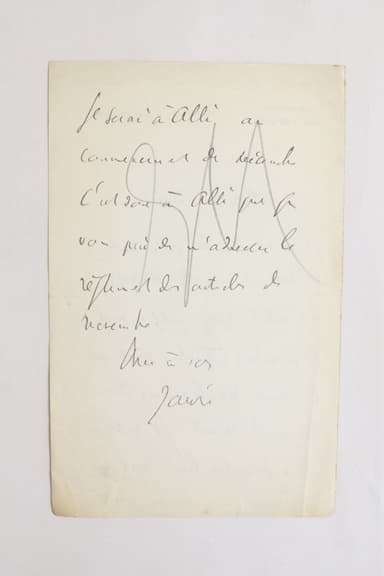 Je serai à Albi, au
commencement de décembre
C'est donc à Albi que je
vous prie de m'adresser le
règlement des articles de
novembre.
à vos
Jaurès